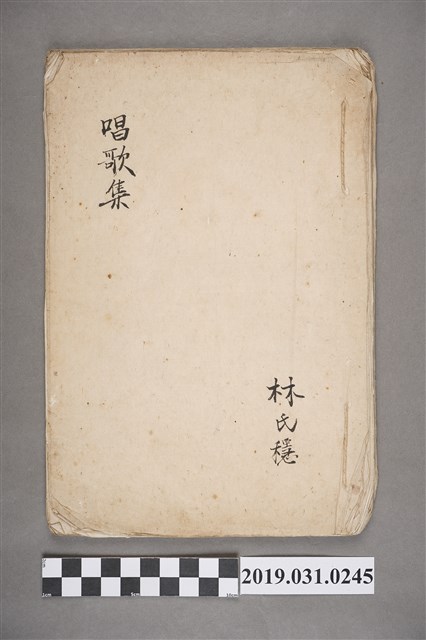 唱歌集
林氏穩
2019.031.0245